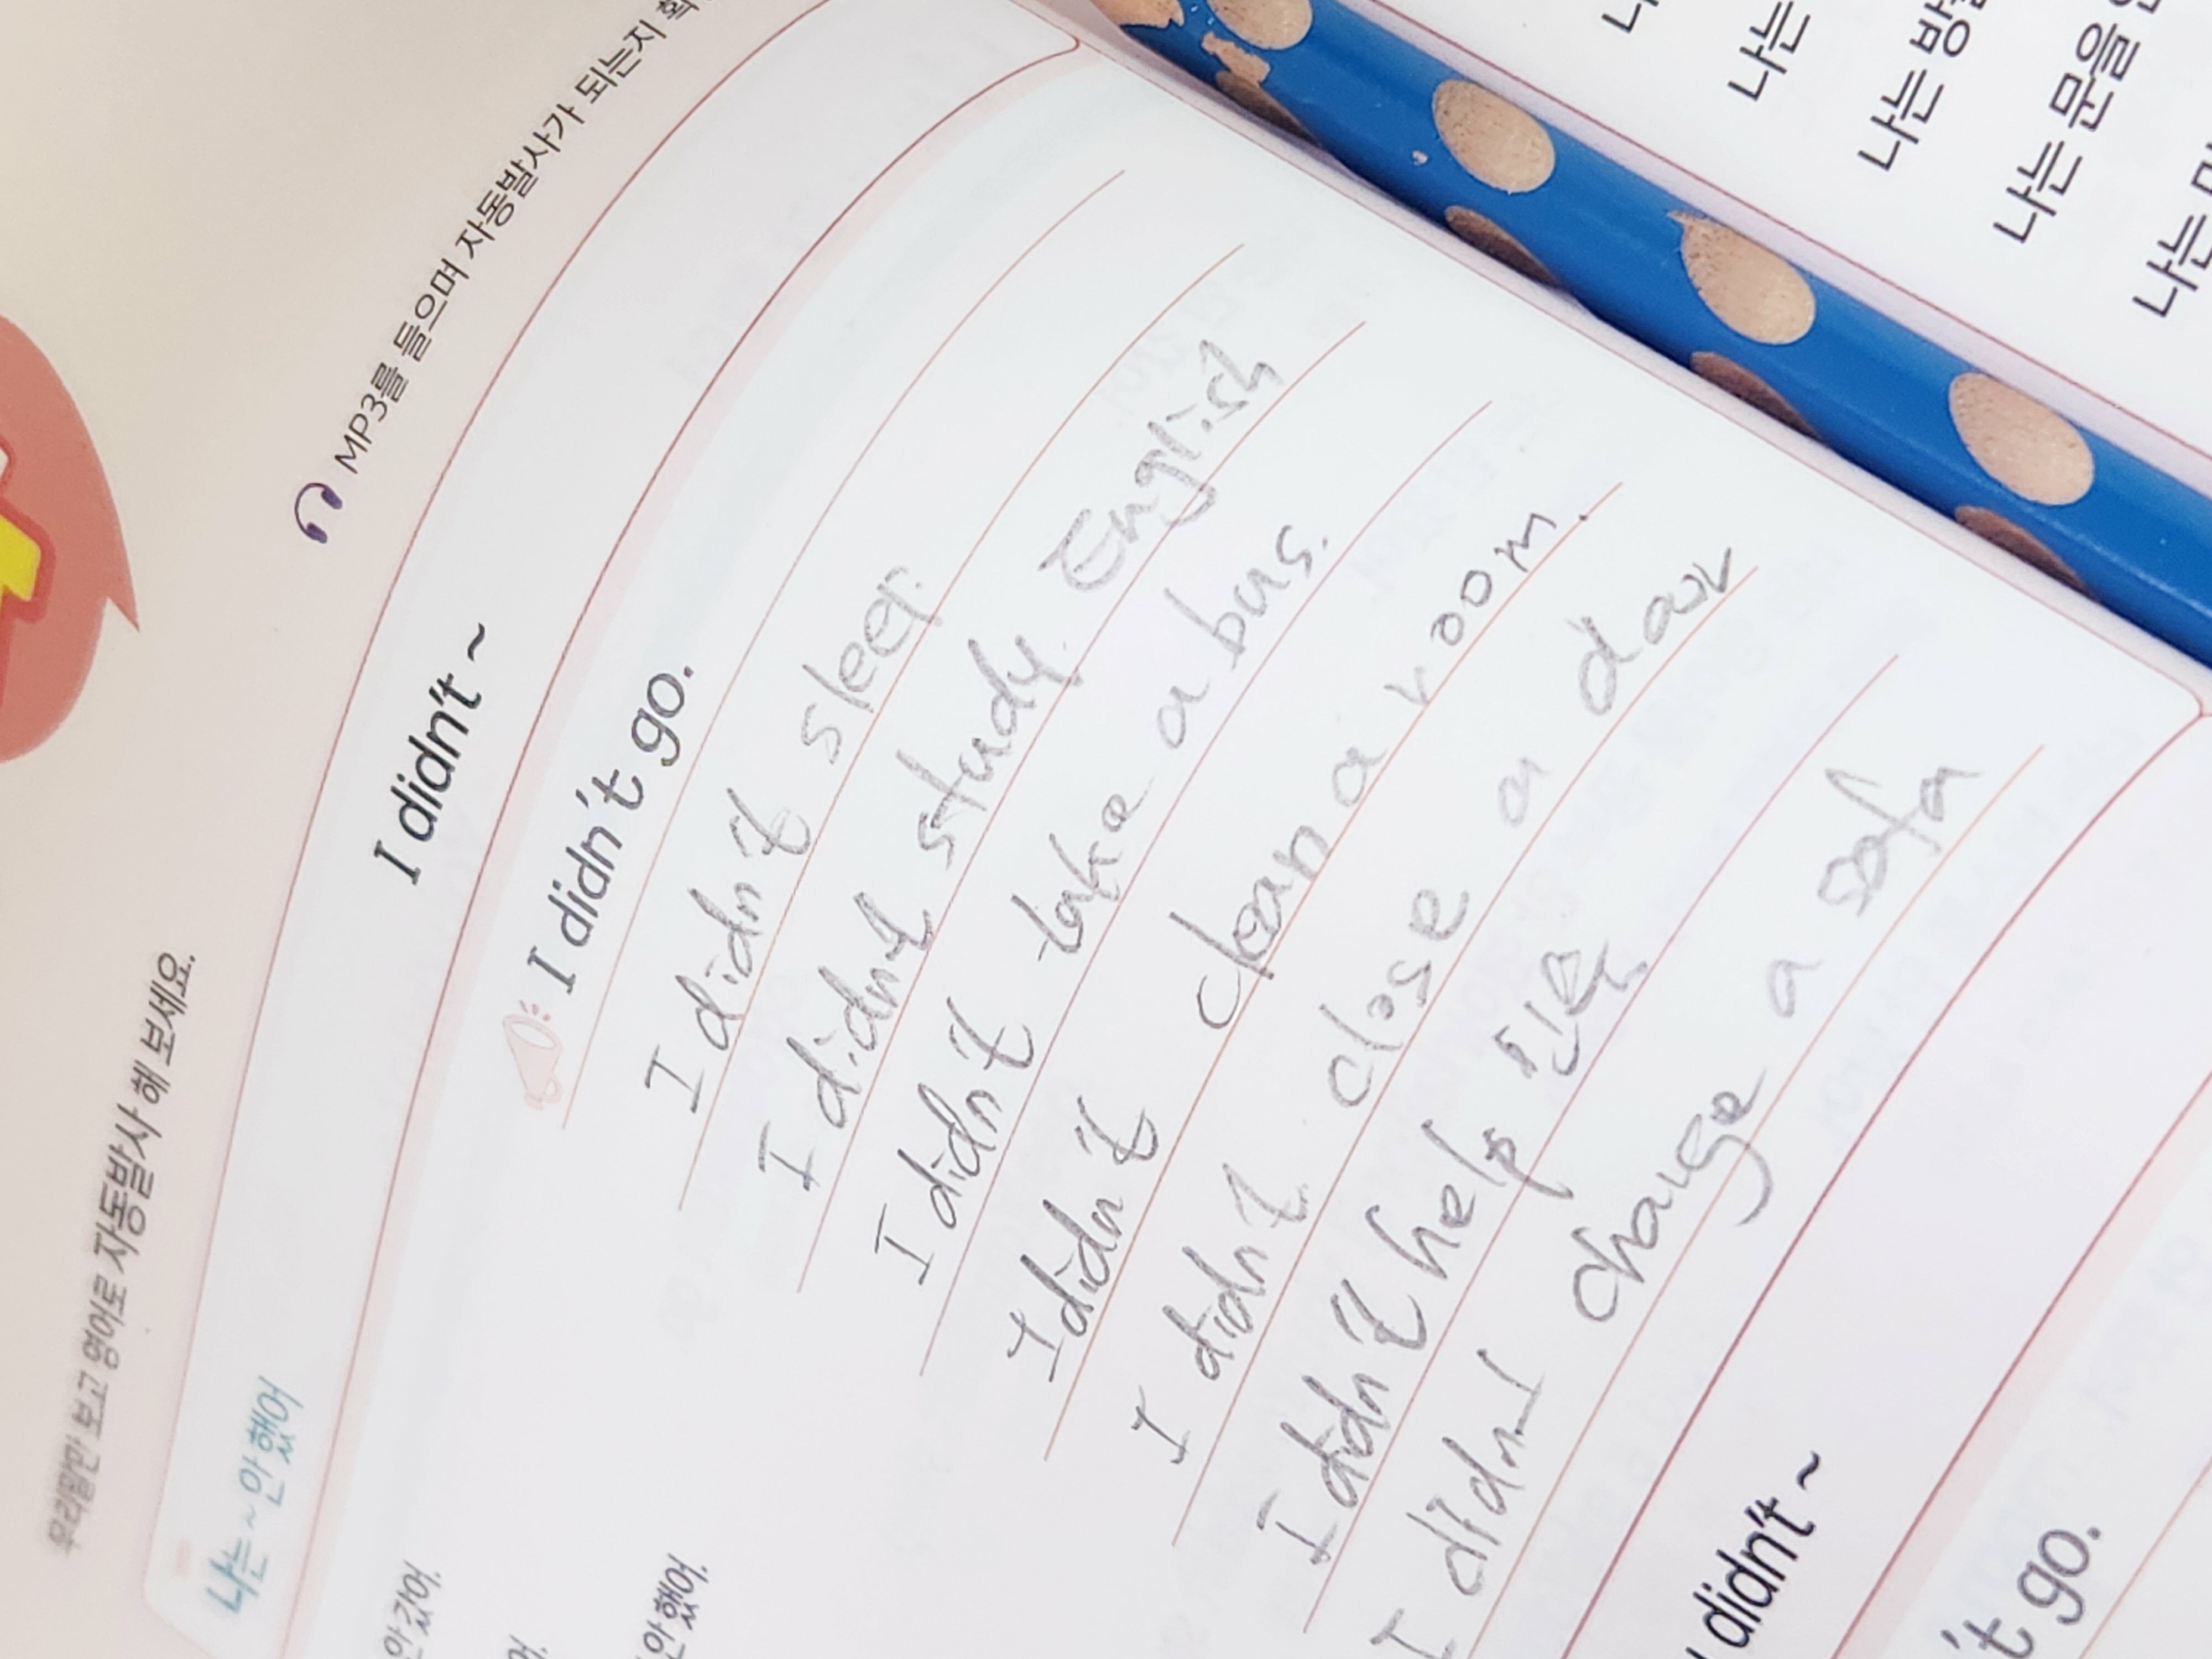 우리말만 보고 영어로 자동발사 해 보세요.
MP3를 들으며 자동발사가 되는지
나는 ~ 안 했어
I didn't ~
안 갔어.
I didn't go.
어.
I didn't sleep.
안 했어.
I didn't study. English
I didn't take a bus.
I didn't clean a room.
I didn't close a
I didn't help
I didn't change a sofa
didn't ~
't go.
나는
나는
나는
나는